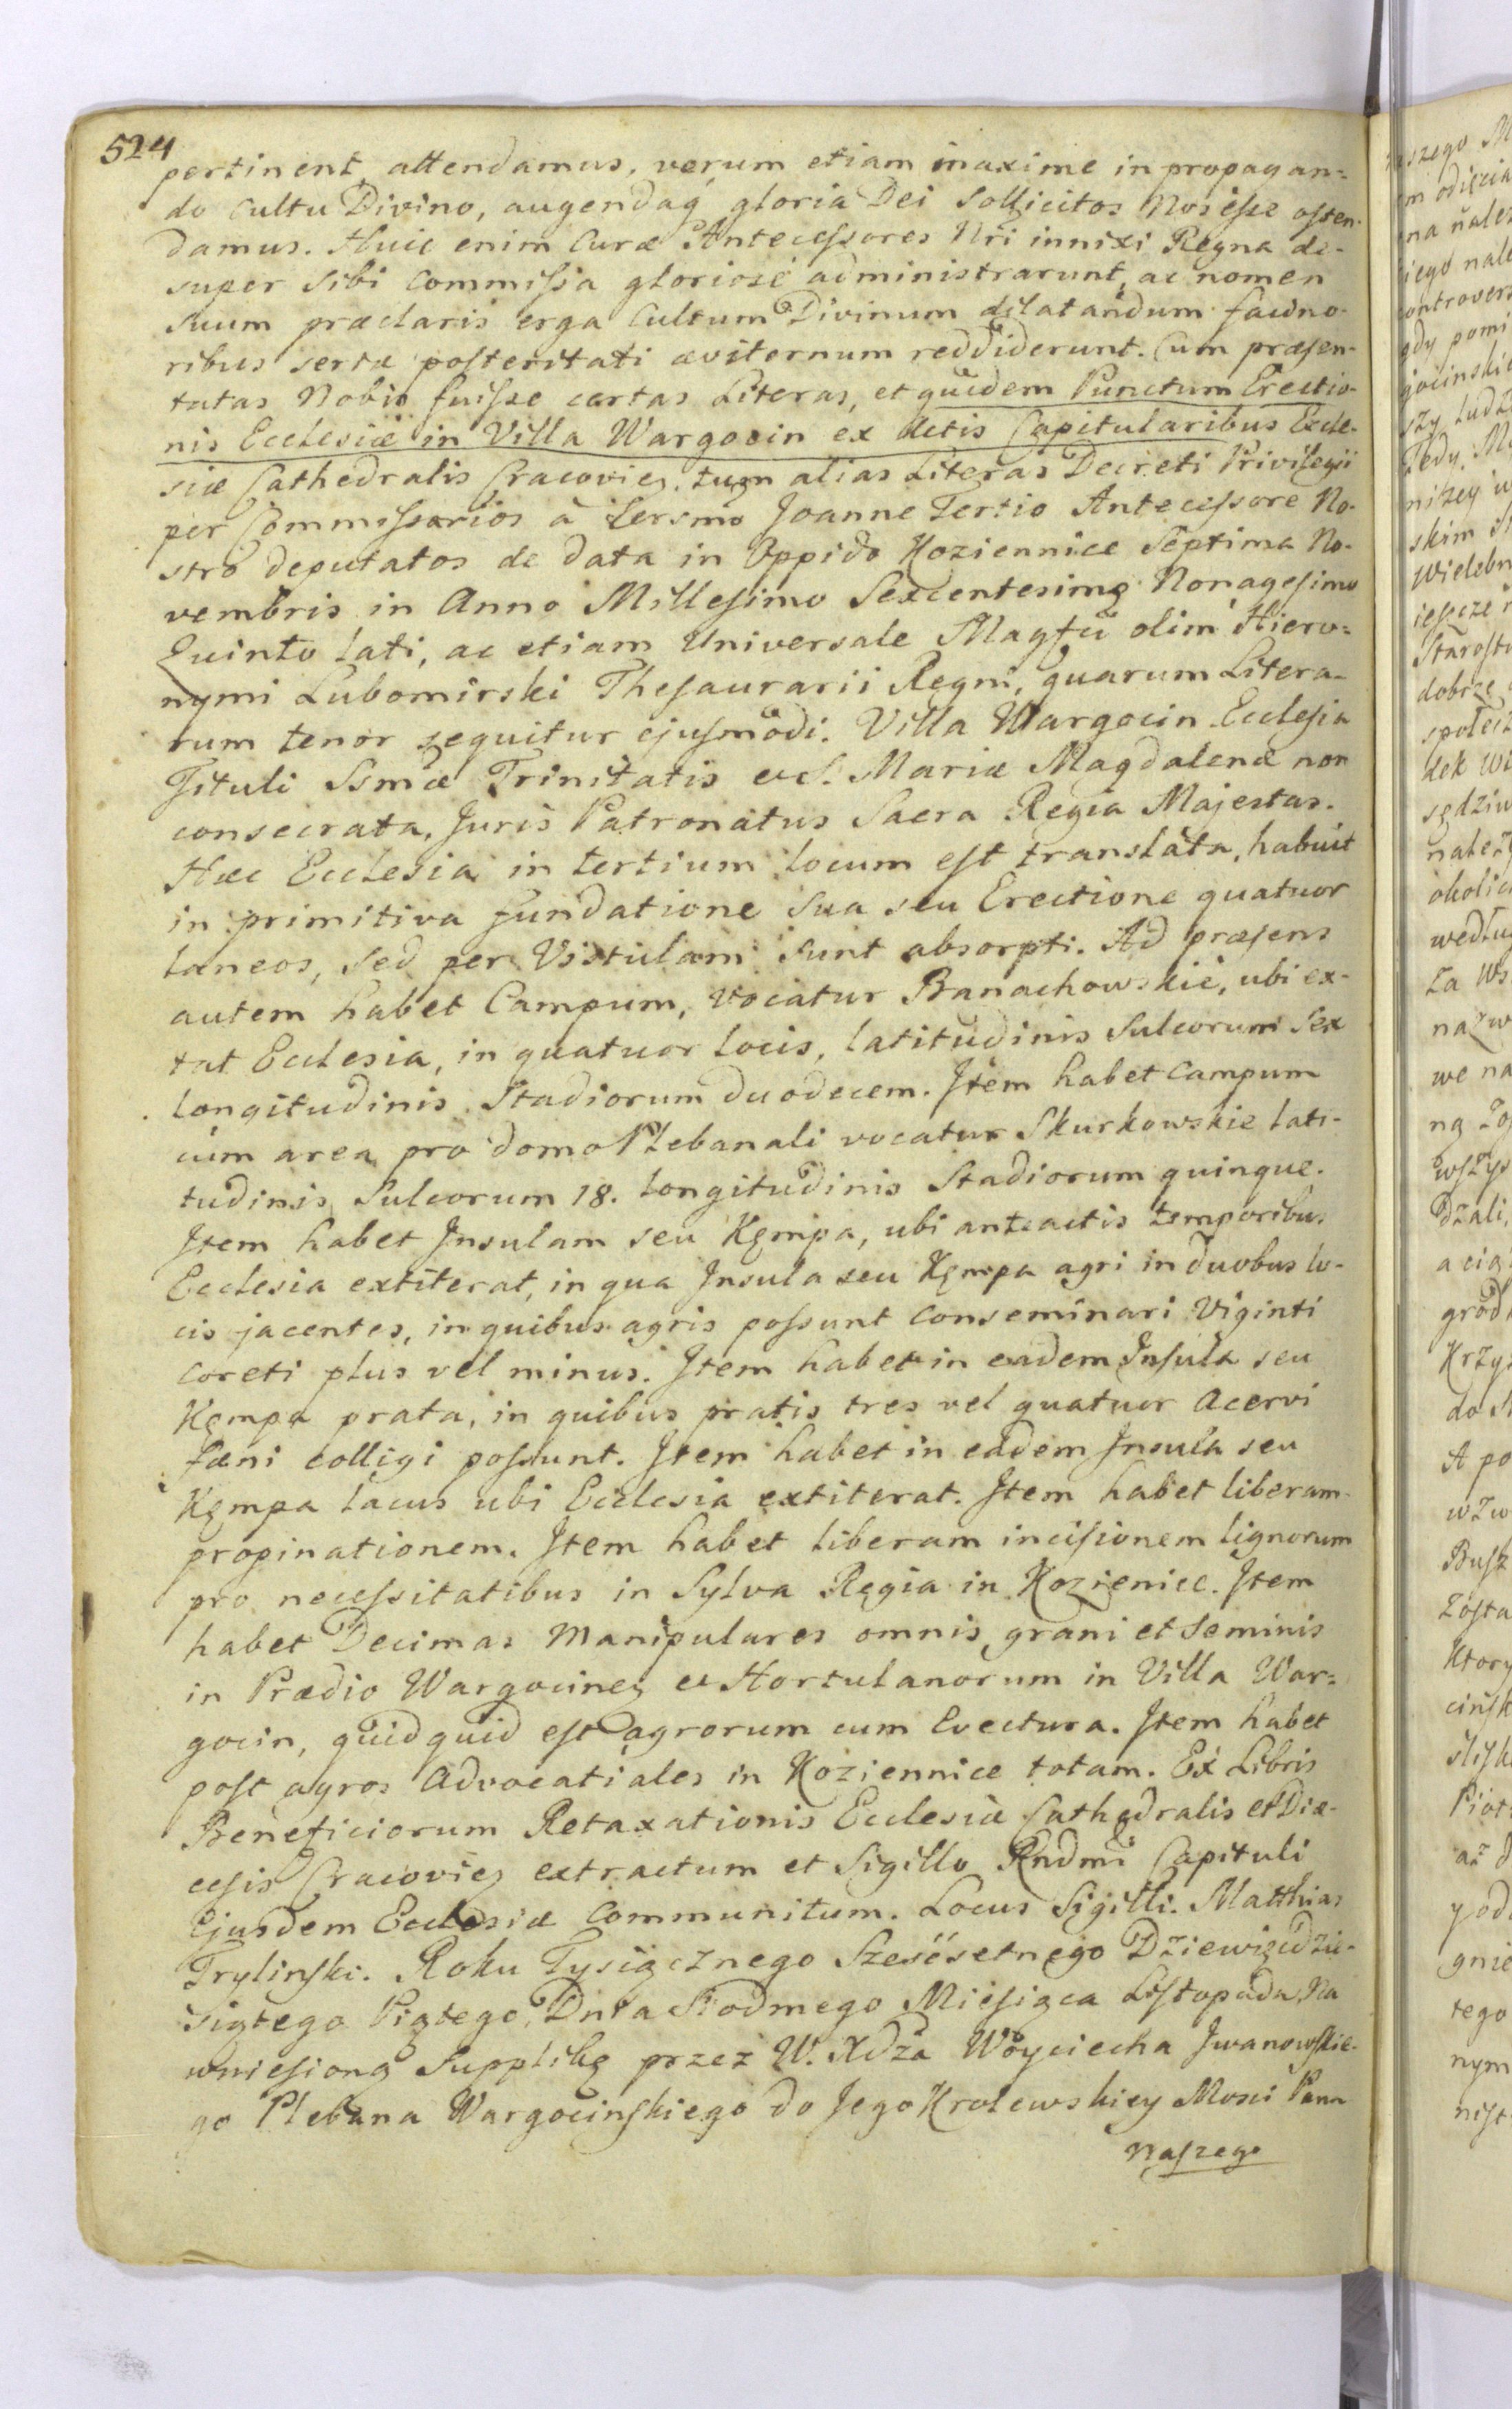 524
pertinent attendamus, verum etiam maxime in propagan=
do Cultu Divino, augendaq gloria Dei Sollicitos Nos eſse oſten-
damus. Huic enim Curæ Anteceſsores Nri innixi Regna de-
super Sibi Commiſsa gloriosé administrarunt, ac nomen
Suum præclaris erga Cultum Divinum dilatandum facino-
ribus seræ poſteritati æviternum reddiderunt. Cum præſen-
tatas Nobis fuiſse certas Literas, et quidem Punctum Erectio-
nis Ecclesiæ in Villa Wargocin ex Actis Capitularibus Eccle-
siæ Cathedralis Cracovieȝ, tum alias Literas Decreti Privilegii
per Commiſsarios à Sersmo Joanne Tertio Anteceſsore No-
stro deputatos de data in Oppido Koziennice Septima No-
vembris in Anno Milleſimo Sexcentesimo Nonageſimo
Quinto lati, ac etiam Universale Magfci olim Hiero=
nymi Lubomirski Theſaurarii Regni, quarum Litera-
rum tenor sequitur ejuſmodi. Villa Wargocin Ecclesia
Tituli Ssmæ Trinitatis et S. Mariæ Magdalenæ non
consecrata, Juris Patronatus Sacra Regia Majestas.
Hæc Ecclesia in tertium locum eſt translata, habuit
in primitiva fundatione Sua seu Erectione quatuor
laneos, Sed per Vistulam Sunt absorpti. Ad præſens
autem habet Campum, Vocatur Banachowskie, ubi ex-
tat Ecclesia, in quatuor locis, latitudinis Sulcorum Sex
longitudinis Stadiorum duodecem. Jtem habet Campum
cum area pro domo Plebanali vocatur Skurkowskie lati-
tudinis Sulcorum 18. longitudinis Stadiorum quinque.
Jtem habet Jnsulam seu Kęmpa, ubi anteactis temporibus
Ecclesia extiterat, in qua Jnsula seu Kęmpa agri in duobus lo-
cis jacentes, in quibus agris poſsunt conseminari Viginti
Coreti plus vel minus. Jtem habet in eadem Jnſula seu
Kęmpa prata, in quibus pratis tres vel quatuor Acervi
fæni colligi poſsunt. Jtem habet in eadem Jnsula seu
Kęmpa lacus ubi Ecclesia extiterat. Jtem habet liberam
propinationem. Jtem habet liberam inciſionem lignorum
pro neceſsitatibus in Sylva Regia in Kozienice. Jtem
habet Decimas Manipulares omnis grani et Seminis
in Prædio Wargocineȝ et Hortulanorum in Villa War=
gocin, quidquid eſt agrorum cum Evectura. Jtem habet
poſt agros Advocatiales in Koziennice totam. Ex Libris
Beneficiorum Retaxationis Ecclesiæ Cathedralis et Diæ-
ceſis Cracovieȝ extractum et Sigillo Rndmi Capituli
Ejusdem Ecclesiæ Communitum. Locus Sigilli. Matthias
Trylinſki. Roku Tysiącznego Sześćsetnego Dziewiędzie-
siątego Piątego, Dnia Siodmego Mieſiąca Liſtopada, Na
wnieſioną Supplikę przez W. Xdza Woyciecha Jwanowſkie-
go Plebana Wargocinſkiego do Jego Krolewskiey Mosci Pana
Naſzego